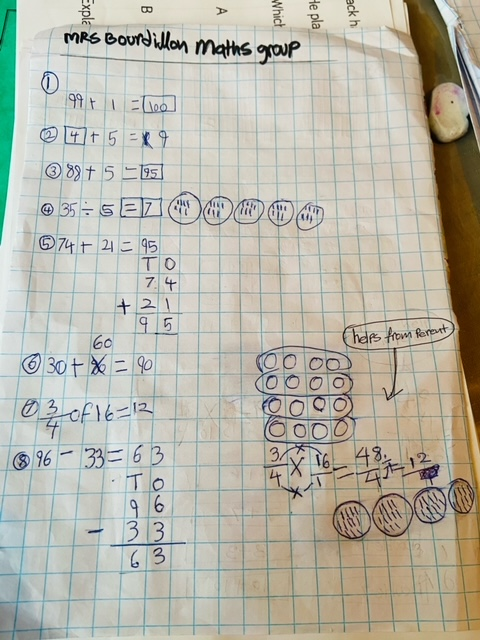 ack h
He pla
Which
A
B
Expla
MRS Bourdillon Maths group
① 99 + 1 = 100
② 4 + 5 = 9
③ 88 + 5 = 95
④ 35 ÷ 5 = 7
⑤ 74 + 21 = 95
T O
7 4
+ 2 1
9 5
60
⑥ 30 + = 90
⑦ 3/4 of 16 = 12
⑧ 96 - 33 = 63
T O
9 6
- 3 3
6 3
helps from Parent
3/4 X 16/1 = 48/4 = 12